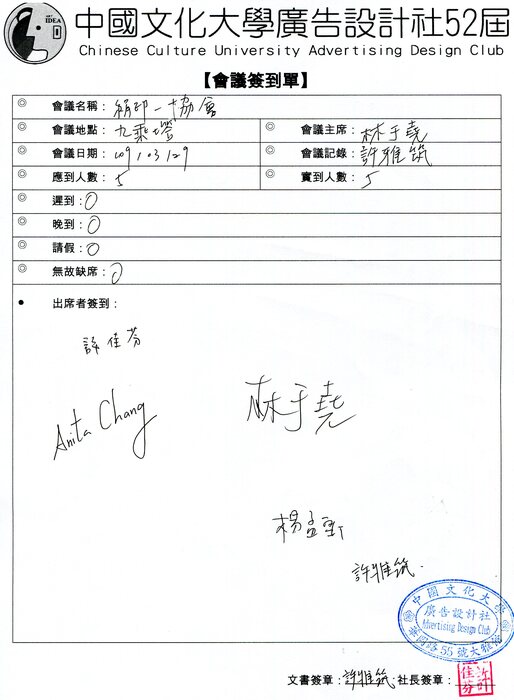 IDEA
中國文化大學廣告設計社52屆
Chinese Culture University Advertising Design Club
【會議簽到單】
◎ 會議名稱：絹印一協會
◎ 會議地點：九乘墖 ◎ 會議主席：林于堯
◎ 會議日期：09/03/29 ◎ 會議記錄：許雅筑
◎ 應到人數：5 ◎ 實到人數：5
◎ 遲到：0
◎ 晚到：0
◎ 請假：0
◎ 無故缺席：0
● 出席者簽到：
許佳芬
Anita Chang
林于堯
楊孟
許雅筑.
中國文化大學
廣告設計社
Advertising Design Club
華岡路55號大雅館
文書簽章：許雅筑 社長簽章：許佳芬